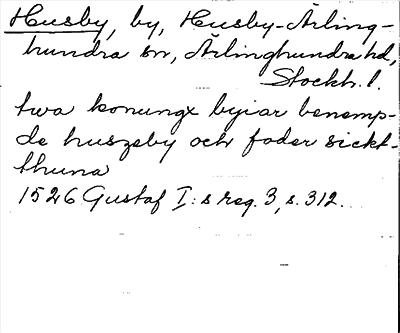 Husby, by, Husby-Ärling-
hundra sn, Ärlinghundra hd,
Stockh. l.
twa konungx byiar benemp-
de huszeby och foder sickt-
thuna
1526 Gustaf I:s reg. 3, s. 312.